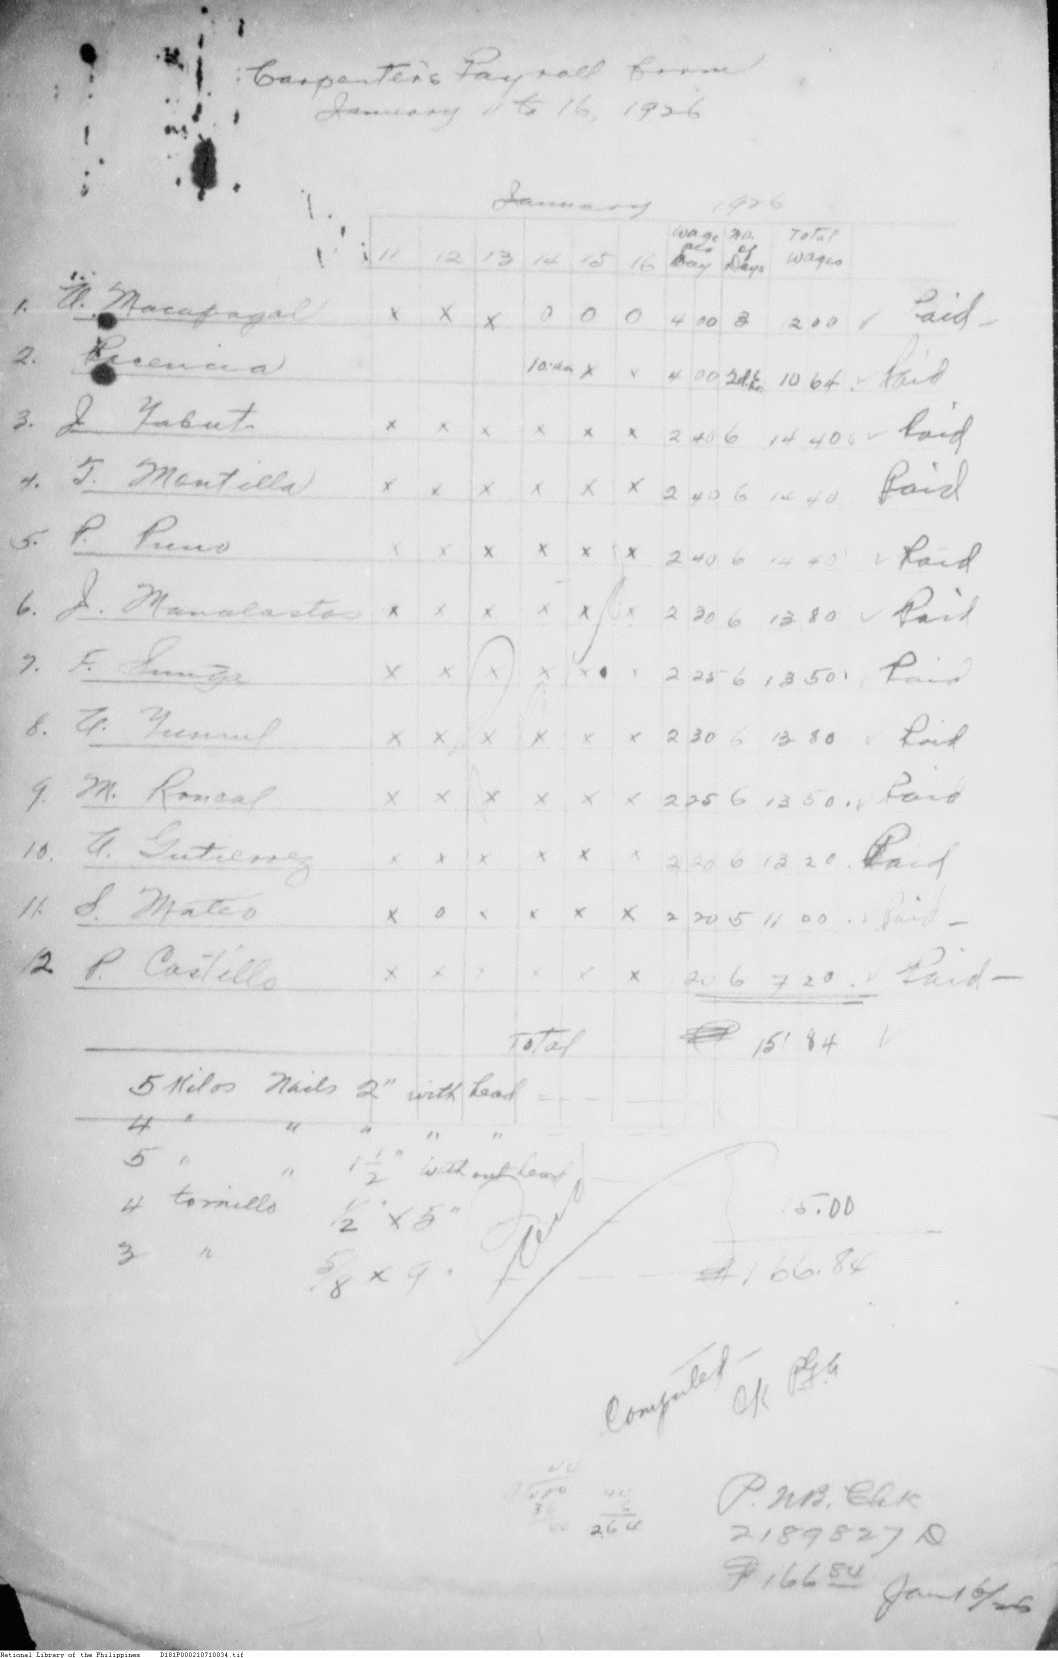 Carpenter's Payroll from
January 11 to 16, 1926
January 1926
11 12 13 14 15 16 Wage per Day No. of Days Total Wages
1. A. Macapagal x x x 0 0 0 4 00 3 12 00 ✓ Paid –
2. 10:am x x 4 00 10 64 ✓ Paid
3. J. Yabut x x x x x x 2 40 6 14 40 ✓ Paid
4. T. Mantilla x x x x x x 2 40 6 14 40 Paid
5. P. Puno x x x x x x 2 40 6 14 40 ✓ Paid
6. J. Manalastas x x x x x x 2 30 6 13 80 ✓ Paid
7. F. Sunga x x x x x x 2 25 6 13 50 Paid
8. A. x x x x x x 2 30 6 13 80 ✓ Paid
9. M. Roncal x x x x x x 2 25 6 13 50 Paid
10. A. Gutierrez x x x x x x 2 20 6 13 20 Paid
11. S. Mateo x 0 x x x x 2 20 5 11 00 ✓ Paid –
12 P. Castillo x x x x x x 20 6 7 20 ✓ Paid –
Total 151 84
5 Kilos Nails 2" with head
4 " " " " "
5 " " 1 1/2" without head
4 tornillo 1/2" x 5" 15.00
3 " 5/8 x 9" ₱166.84
Computed
OK
264
P.N.B. Chk
2189827 D
₱166 84 Jan 16/26
National Library of the Philippines D181P000210710034.tif